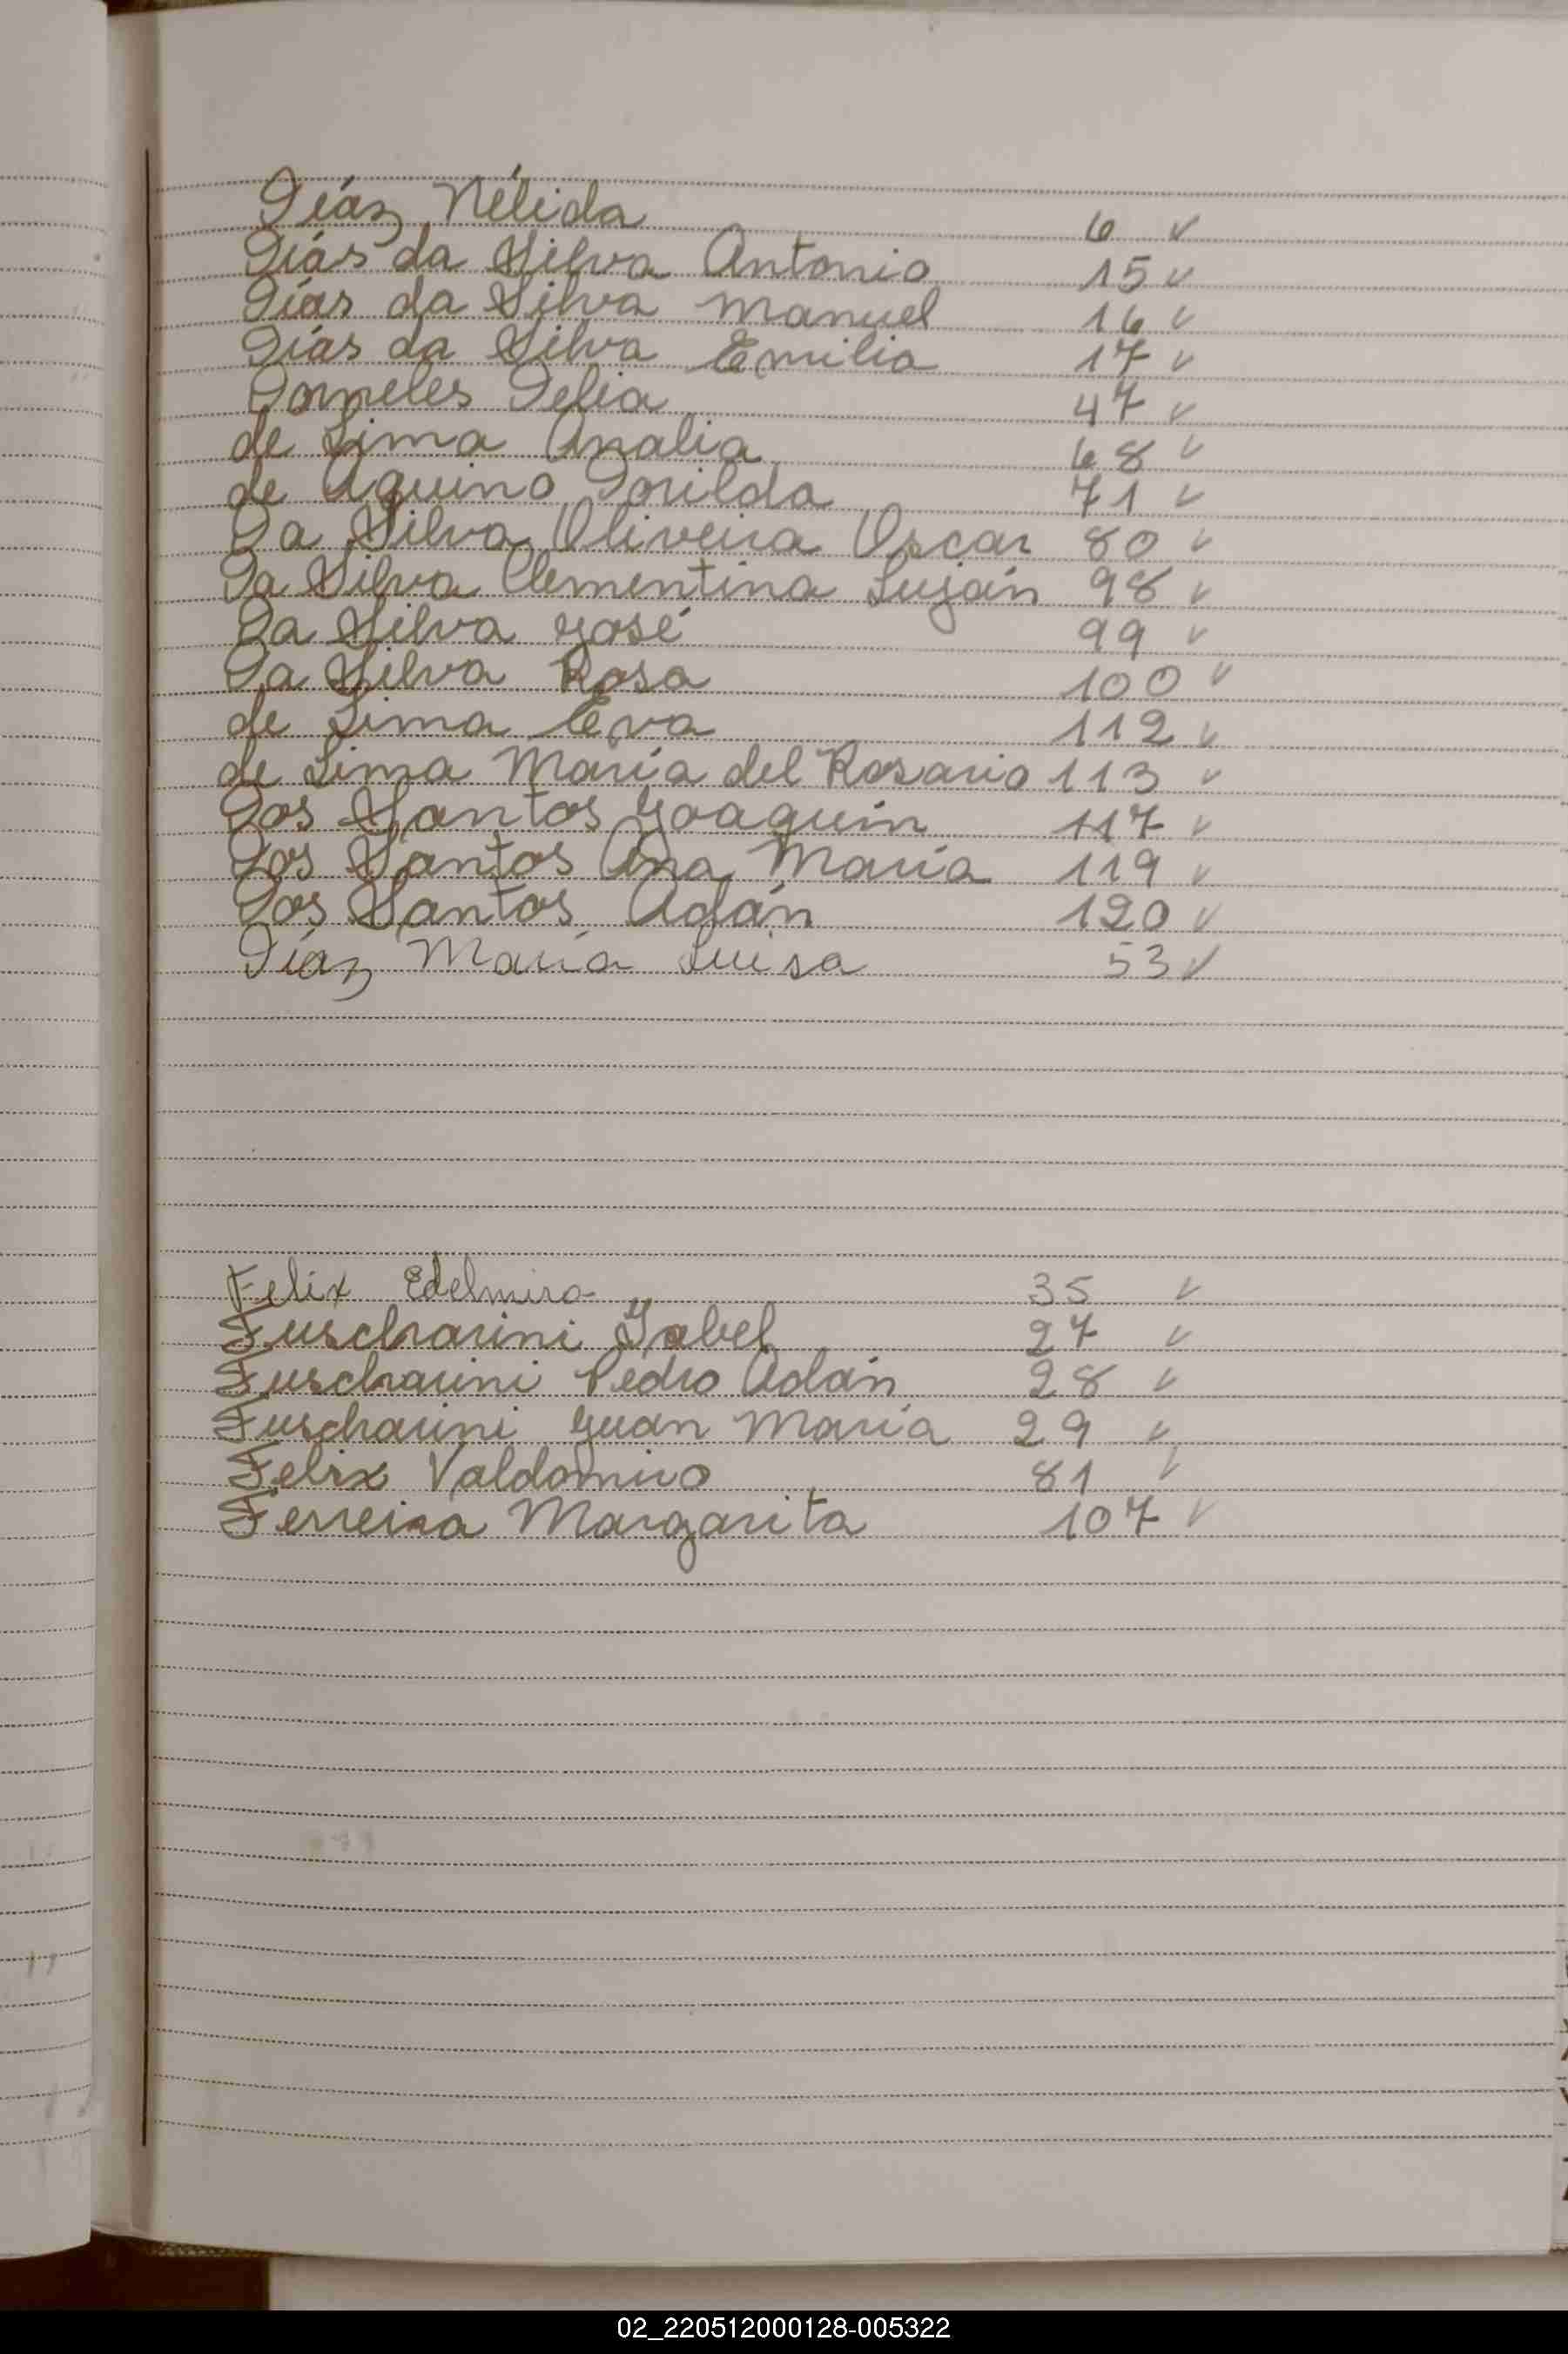 Diáz Nélida 6 ✓
Diás da Silva Antonio 15 ✓
Diás da Silva Manuel 16 ✓
Diás da Silva Emilia 17 ✓
Dorneles Delia 47 ✓
de Lima Analia 68 ✓
de Aquino Dorilda 71 ✓
Da Silva Oliveira Oscar 80 ✓
Da Silva Clementina Luján 98 ✓
Da Silva José 99 ✓
Da Silva Rosa 100 ✓
de Lima Eva 112 ✓
de Lima María del Rosario 113 ✓
Dos Santos Joaquín 117 ✓
Dos Santos Ana María 119 ✓
Dos Santos Adán 120 ✓
Díaz María Luisa 53 ✓
Felix Edelmira 35 ✓
Fuscharini Isabel 27 ✓
Fuscharini Pedro Adán 28 ✓
Fuscharini Juan María 29 ✓
Felix Valdomiro 81 ✓
Ferreira Margarita 107 ✓
02_220512000128-005322